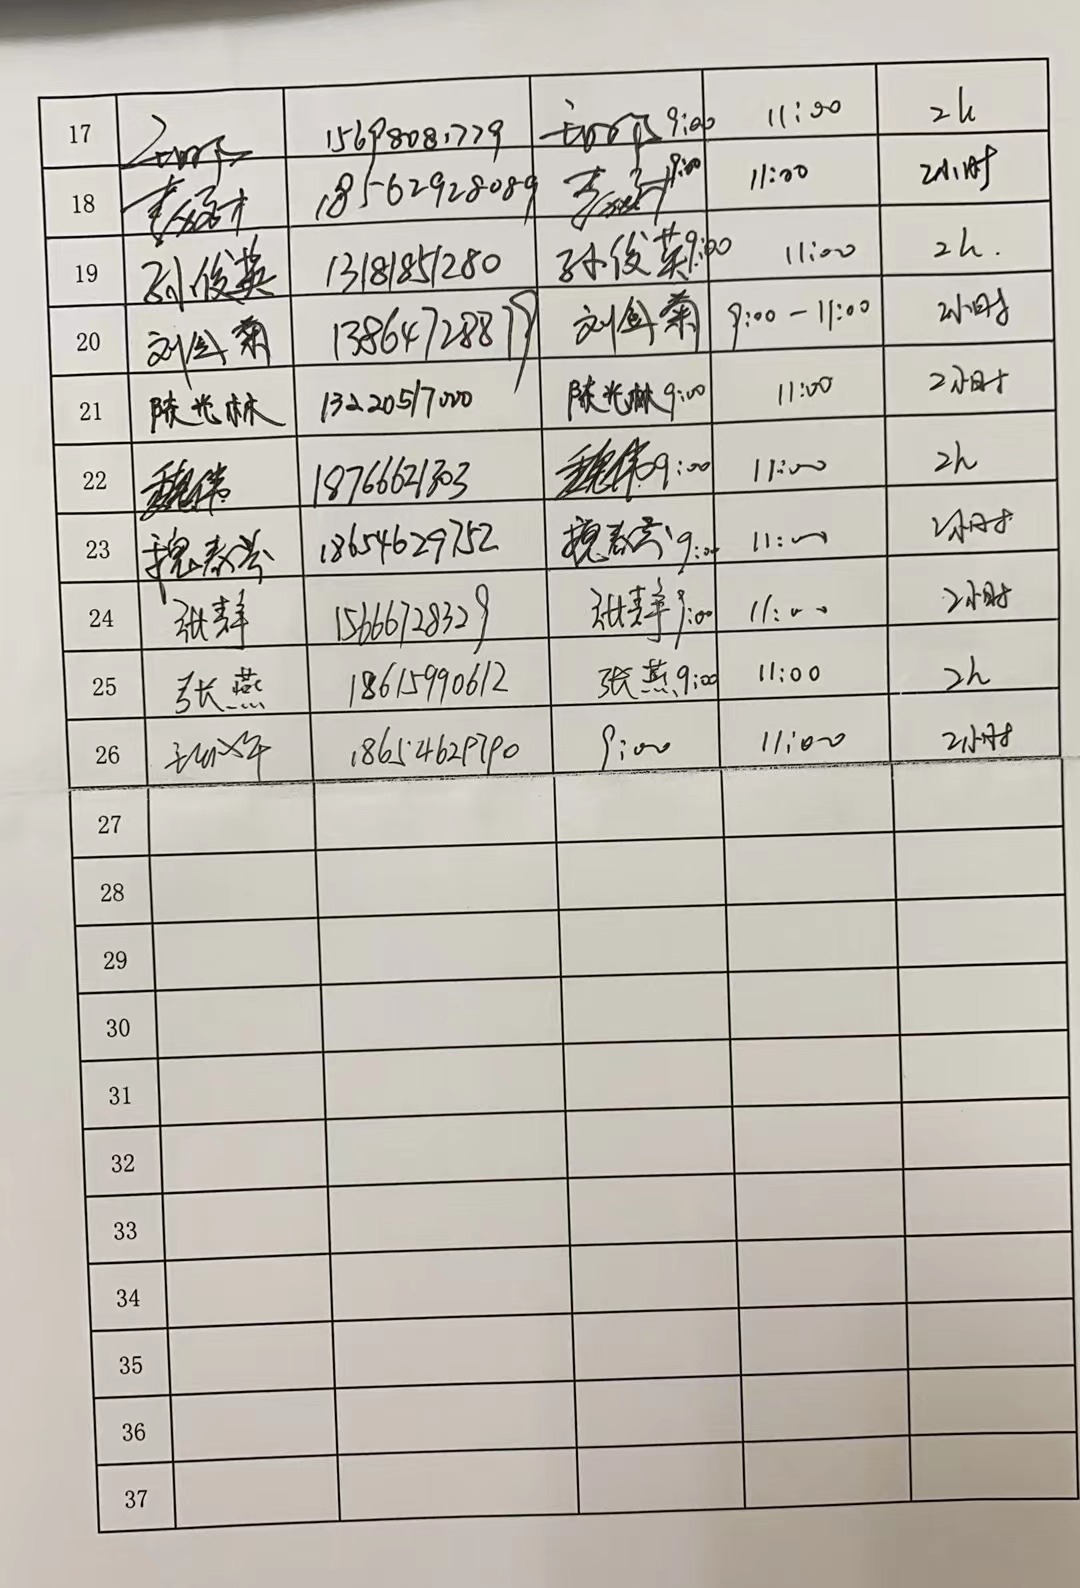 17 15698081779 9:00 11:00 2h
18 18562928089 9:00 11:00 2小时
19 孙俊英 13181851280 孙俊英 9:00 11:00 2h.
20 刘金菊 13864728879 刘金菊 9:00-11:00 2小时
21 陈光林 13220517000 陈光林 9:00 11:00 2小时
22 魏伟 18766621303 魏伟 9:00 11:00 2h
23 魏春芳 18654629752 魏春芳 9:00 11:00 2小时
24 张 15666728329 张 9:00 11:00 2小时
25 张燕 18615990612 张燕 9:00 11:00 2h
26 18654629790 9:00 11:00 2小时
27
28
29
30
31
32
33
34
35
36
37